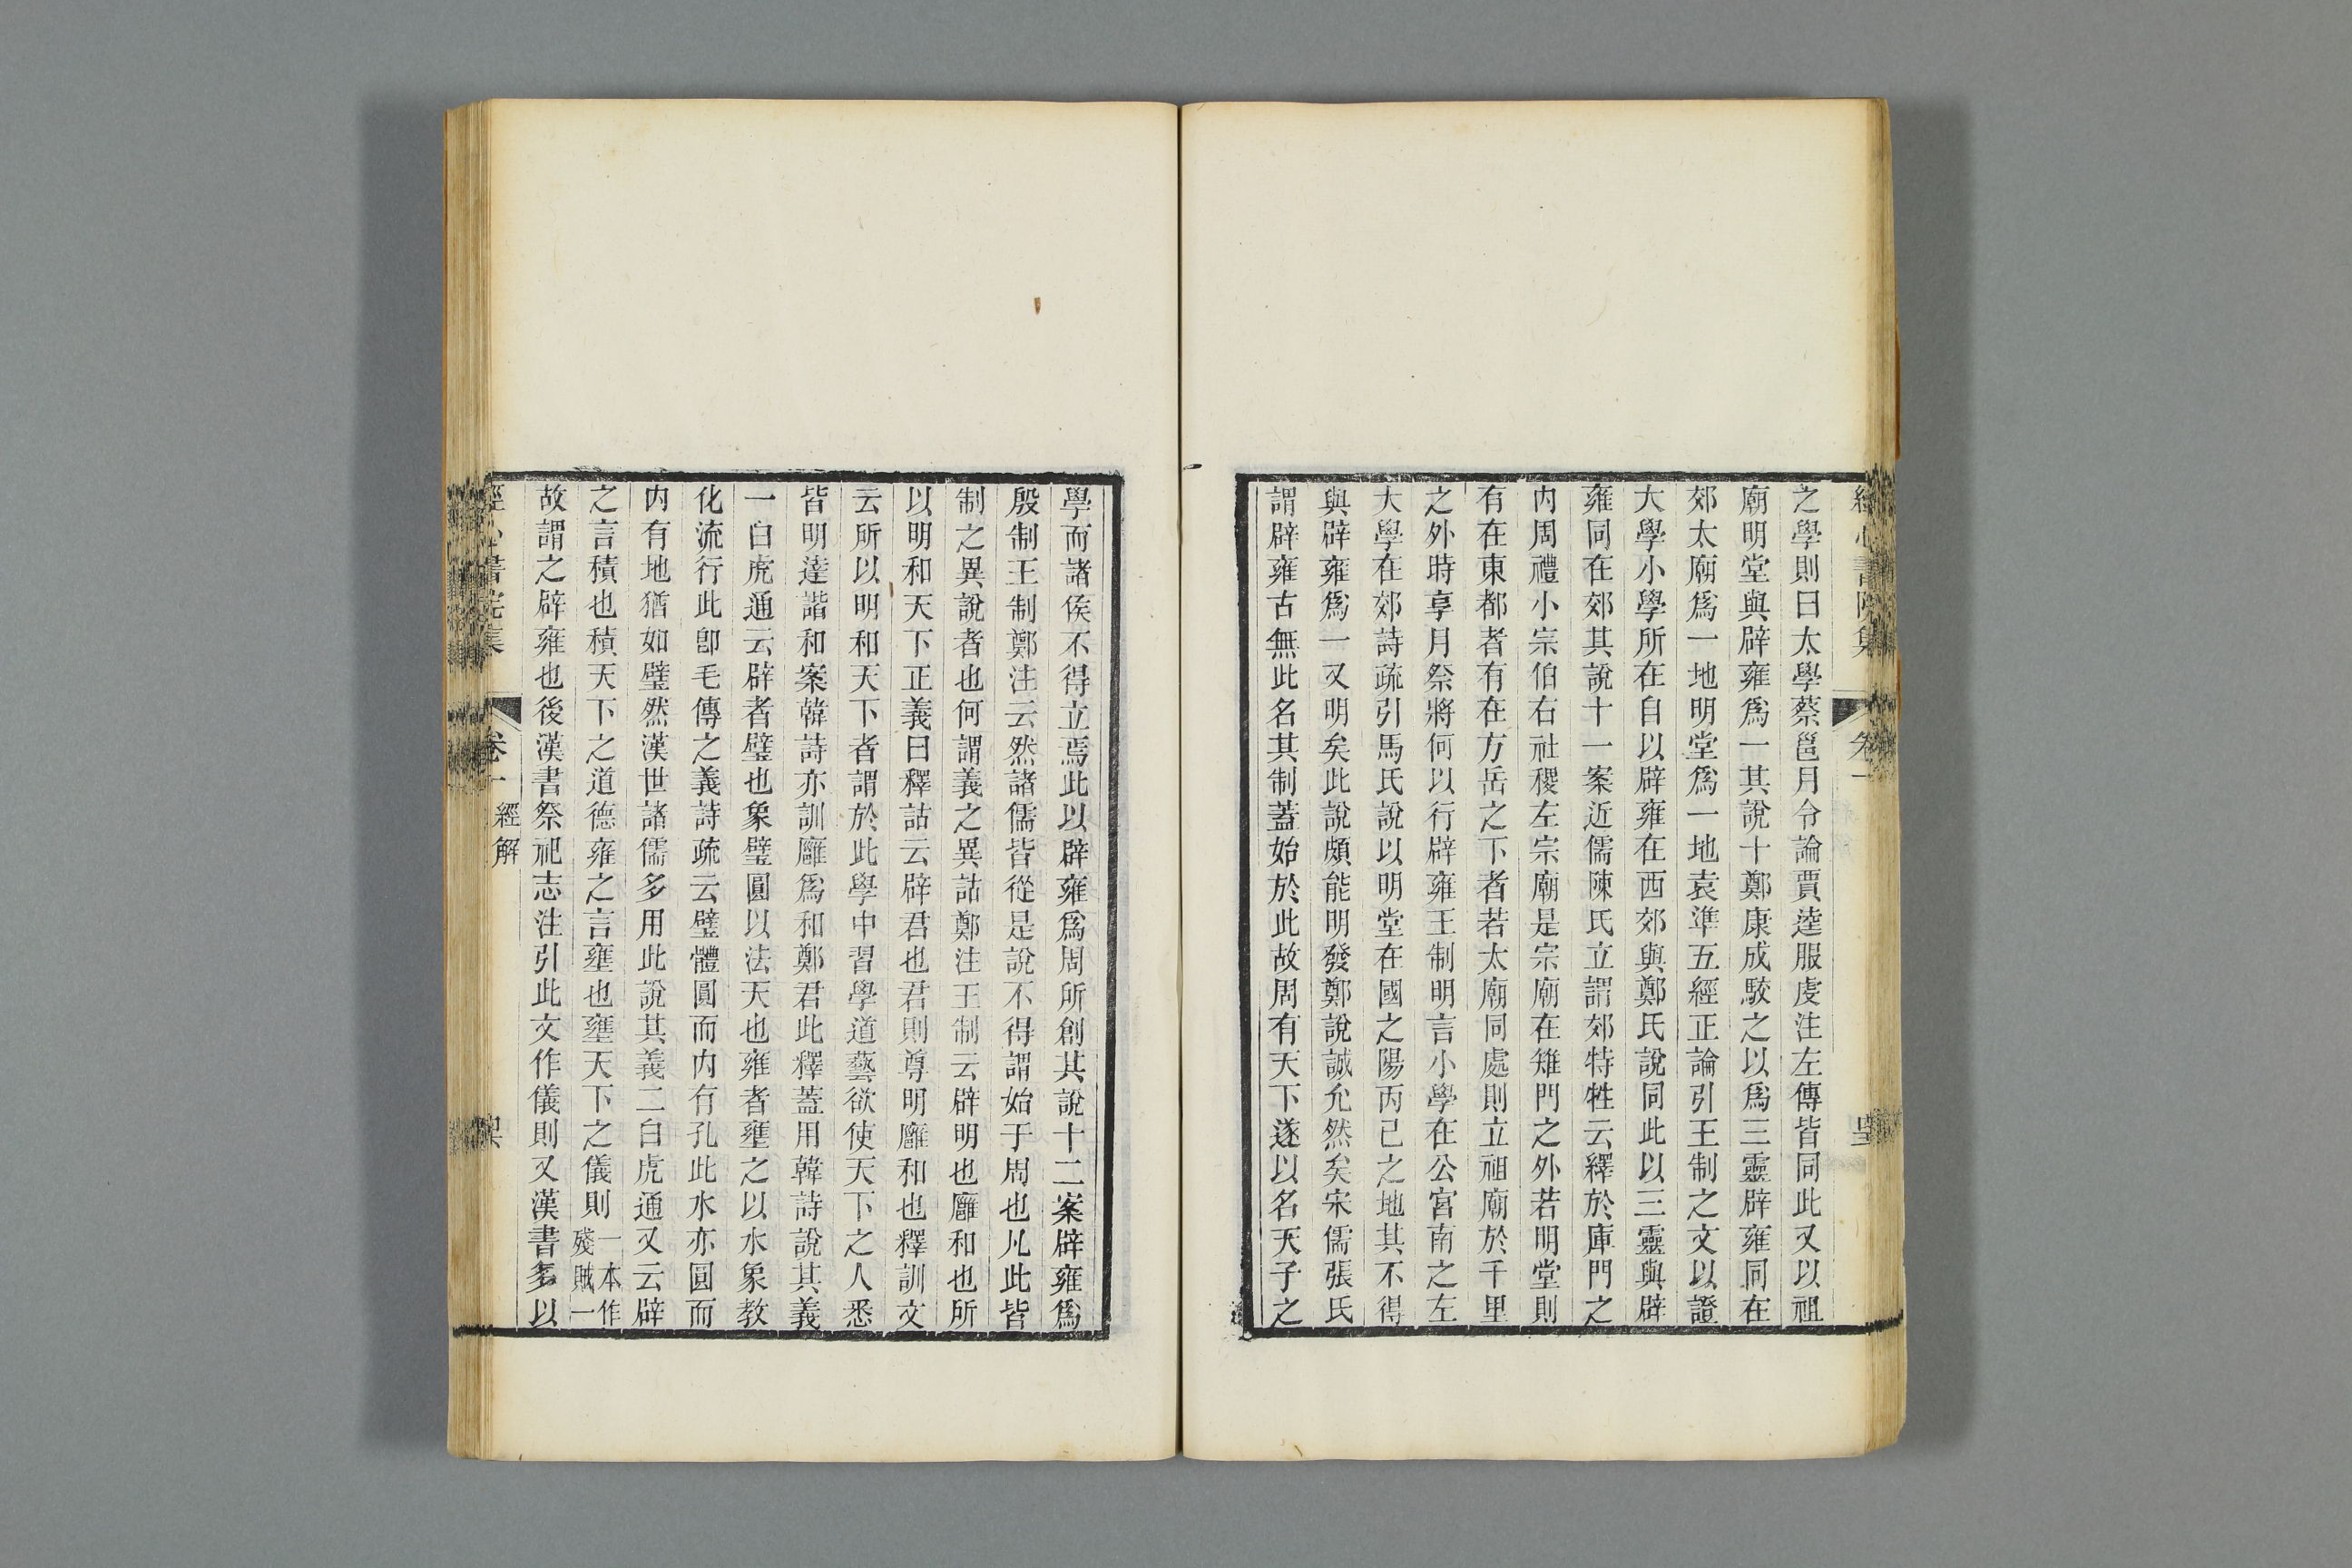 經心書院集
卷一
之學則曰太學蔡邕月令論賈逵服虔注左傳皆同此又以祖
廟明堂與辟雍爲一其說十鄭康成駮之以爲三靈辟雍同在
郊太廟爲一地明堂爲一地袁準五經正論引王制之文以證
大學小學所在自以辟雍在西郊與鄭氏說同此以三靈與辟
雍同在郊其說十一案近儒陳氏立謂郊特牲云繹於庫門之
內周禮小宗伯右社稷左宗廟是宗廟在雉門之外若明堂則
有在東都者有在方岳之下者若太廟同處則立祖廟於千里
之外時享月祭將何以行辟雍王制明言小學在公宮南之左
大學在郊詩疏引馬氏說以明堂在國之陽丙己之地其不得
與辟雍爲一又明矣此說頗能明發鄭說誠允然矣宋儒張氏
謂辟雍古無此名其制蓋始於此故周有天下遂以名天子之
學而諸侯不得立焉此以辟雍爲周所創其說十二案辟雍爲
殷制王制鄭注云然諸儒皆從是說不得謂始于周也凡此皆
制之異說者也何謂義之異詁鄭注王制云辟明也廱和也所
以明和天下正義曰釋詁云辟君也君則尊明廱和也釋訓文
云所以明和天下者謂於此學中習學道藝欲使天下之人悉
皆明達諧和案韓詩亦訓廱爲和鄭君此釋蓋用韓詩說其義
一白虎通云辟者璧也象璧圓以法天也雍者壅之以水象教
化流行此卽毛傳之義詩疏云璧體圓而內有孔此水亦圓而
內有地猶如璧然漢世諸儒多用此說其義二白虎通又云辟
之言積也積天下之道德雍之言壅也壅天下之儀則一本作
殘賊一
故謂之辟雍也後漢書祭祀志注引此文作儀則又漢書多以
經心書院集
卷一
經解